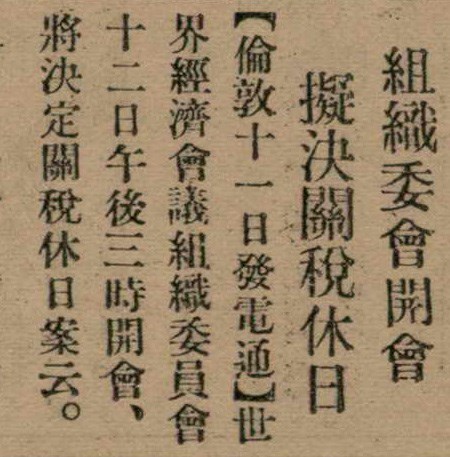 組織委會開會
擬決關稅休日
【倫敦十一日發電通】世
界經濟會議組織委員會
十二日午後三時開會、
將決定關稅休日案云。